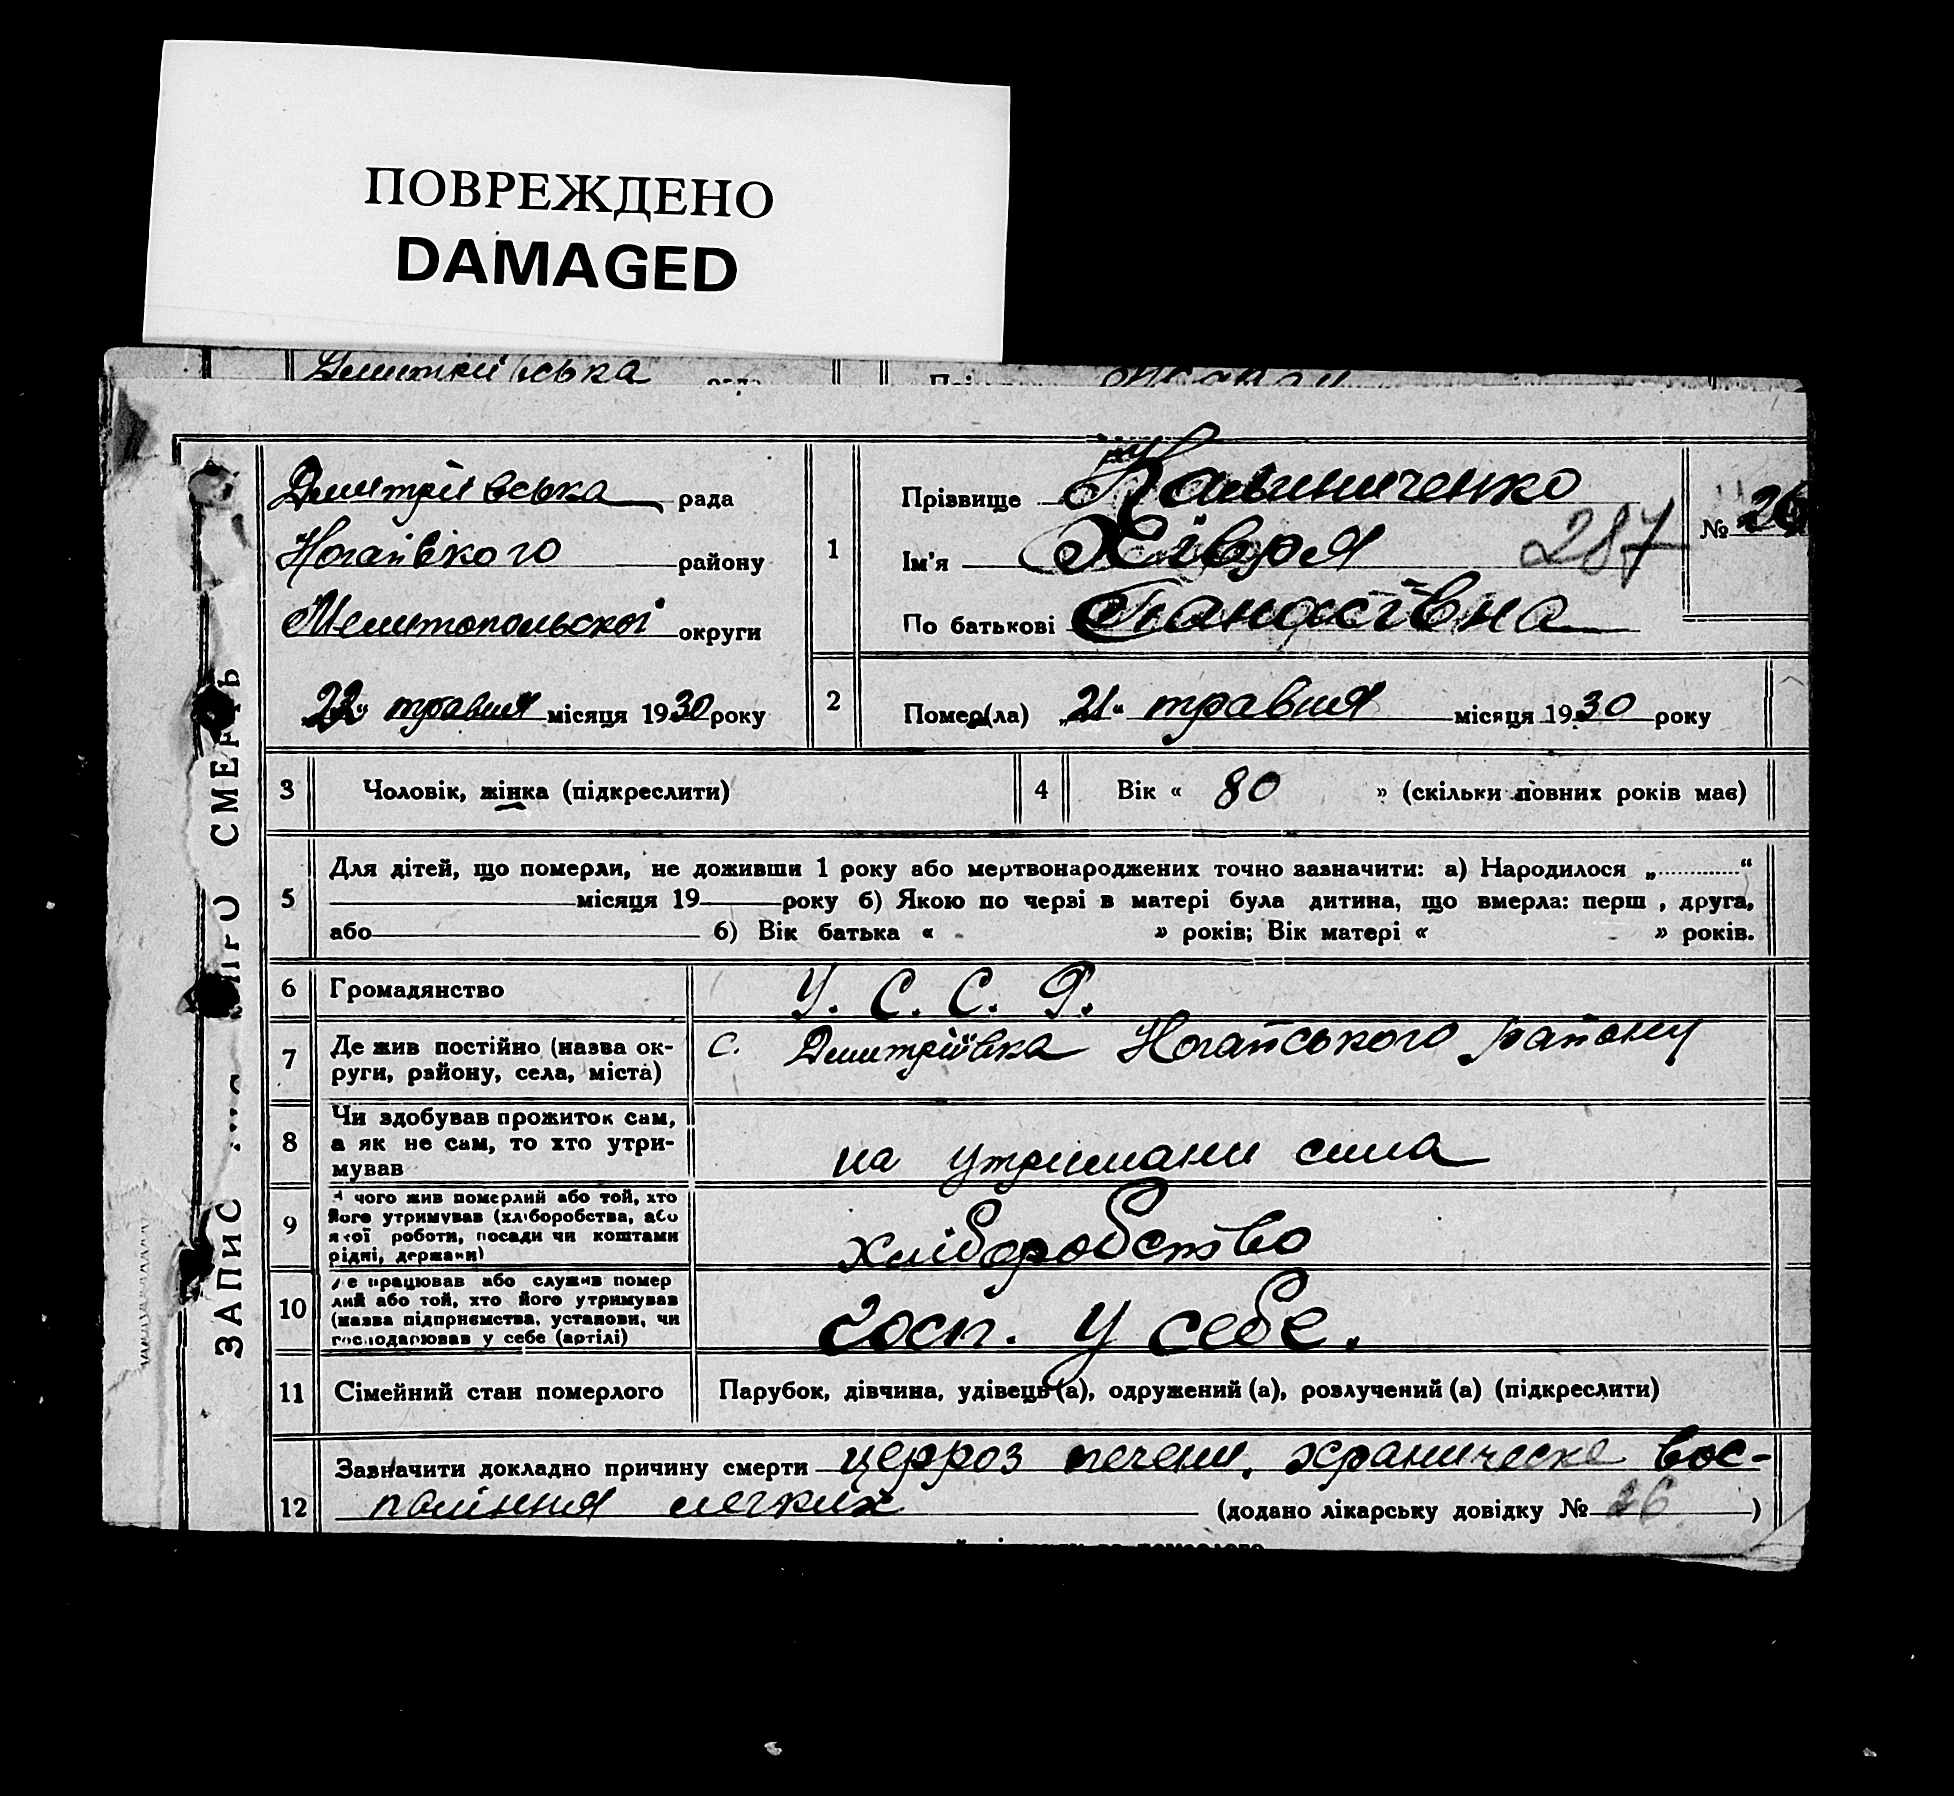 ПОВРЕЖДЕНО
DAMAGED
Дмитріївська
ЗАПИС ПРО СМЕРТЬ
Дмитріївська рада
Ногайвкого району
Мелитопольскої округи
22 травня місяця 1930 року
1
Прізвище Калиниченко
Ім'я Хівря 287
По батькові Панасівна
№ 26
2
Помер(ла) „21“ травня місяця 1930 року
3 Чоловік, жінка (підкреслити)
4 Вік « 80 » (скільки повних років має)
5
Для дітей, що померли, не доживши 1 року або мертвонароджених точно зазначити: а) Народилося „............“
місяця 19 року б) Якою по черзі в матері була дитина, що вмерла: перш , друга,
або б) Вік батька « » років; Вік матері « » років.
6 Громадянство У. С. С. Р.
7 Де жив постійно (назва ок-
руги, району, села, міста)
с. Дмитріївка Ногайського району
8 Чи здобував прожиток сам,
а як не сам, то хто утри-
мував
на утримани сина
9 чого жив померлий або той, хто
його утримував (хліборобства, або
якої роботи, посади чи коштами
рідні, держави)
хліборобство
10 Де працював або служив помер
лий або той, хто його утримував
(назва підприємства, установи, чи
господарював у себе (артілі)
госп. у себе.
11 Сімейний стан померлого Парубок, дівчина, удівець(а), одружений (а), розлучений (а) (підкреслити)
12 Зазначити докладно причину смерти церроз печени, храническе вос-
паління легких (додано лікарську довідку № 26 )